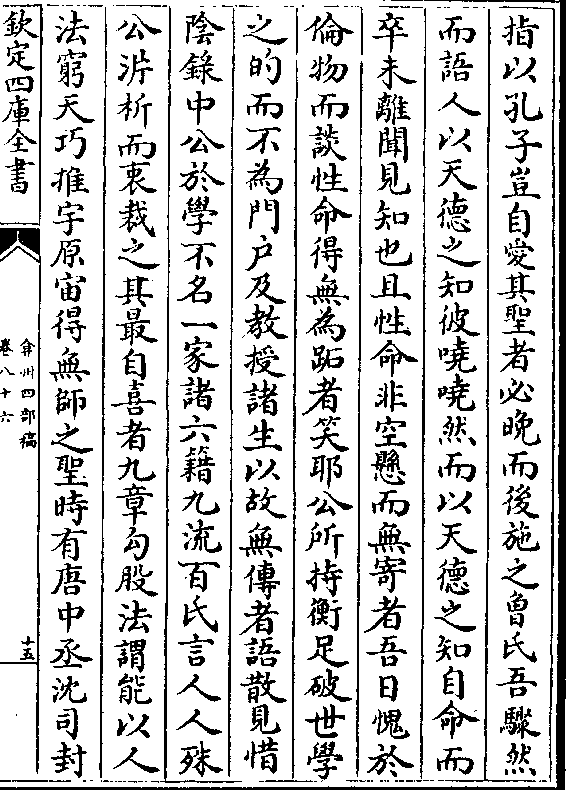 指以孔子豈自愛其聖者必晚而後施之曾氏吾驟然
而語人以天德之知彼嘵嘵然而以天德之知自命而
卒未離聞見知也且性命非空懸而無寄者吾日愧於
倫物而談性命得無為跖者笑耶公所持衡足破世學
之的而不為門户及教授諸生以故無傳者語散見惜
陰錄中公於學不名一家諸六籍九流百氏言人人殊
公泮析而衷裁之其最自喜者九章勾股法謂能以人
法窮天巧推宇原宙得無師之聖時有唐中丞沈司封
欽定四庫全書
弇州四部稿
卷八十六
十五